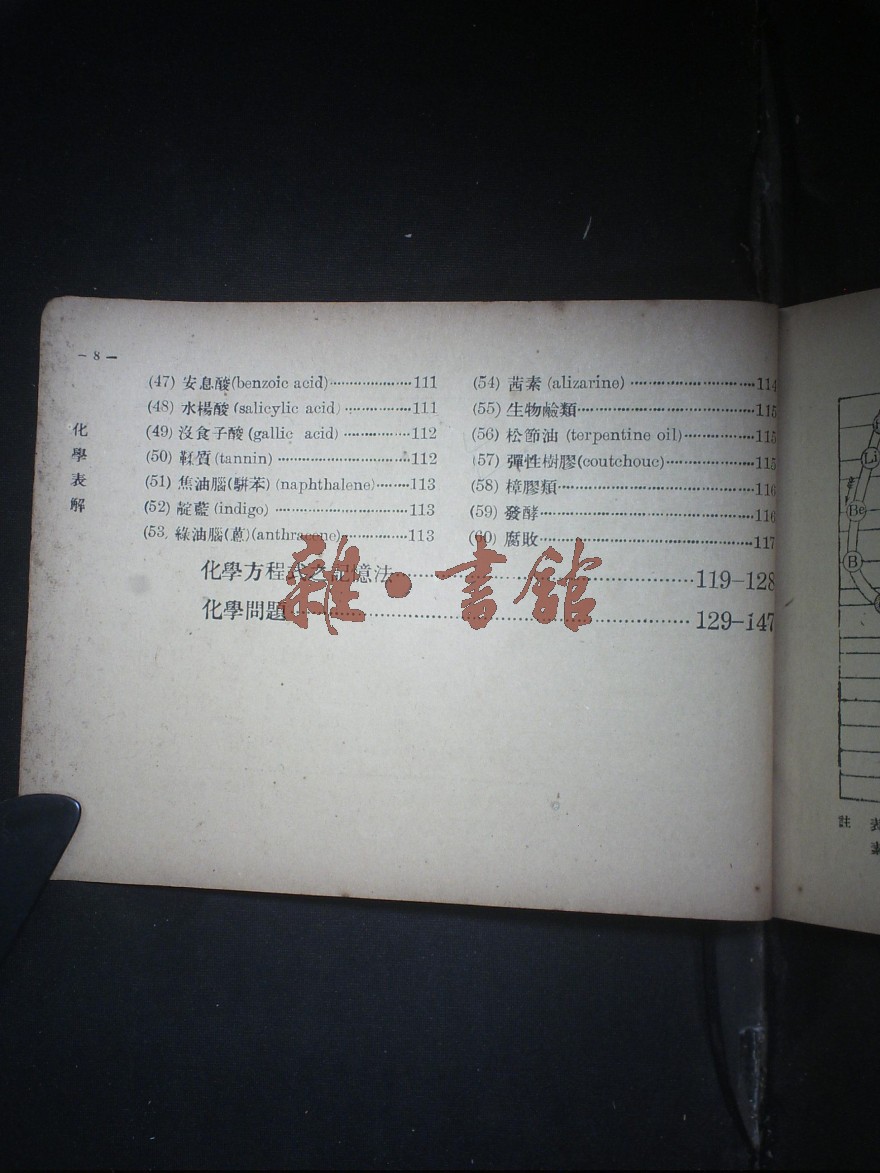 – 8 –
化學表解
(47) 安息酸(benzoic acid)····················111
(48) 水楊酸(salicylic acid)····················111
(49) 沒食子酸(gallic acid)····················112
(50) 鞣質(tannin)····················112
(51) 焦油腦(駢苯)(naphthalene)········113
(52) 靛藍(indigo)····················113
(53) 綠油腦(蒽)(anthracene)····················113
(54) 茜素(alizarine)····················114
(55) 生物鹼類····················115
(56) 松節油(terpentine oil)····················115
(57) 彈性樹膠(coutchouc)····················115
(58) 樟膠類····················116
(59) 發酵····················116
(60) 腐敗····················117
化學方程式之記憶法····················119–128
化學問題····················129–147
雜·書館
Li
Be
B
註 表
素